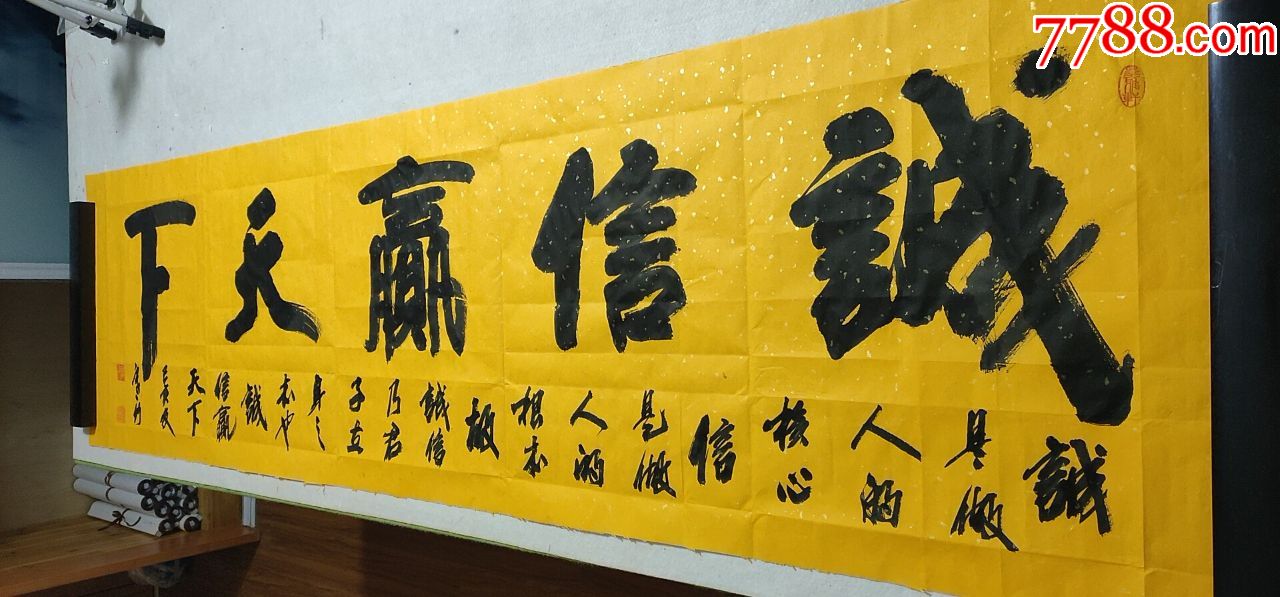 7788.com
誠信贏天下
誠
是做
人的
核心
信
是做
人的
根本
故
誠信
乃君
子立
身之
本也
誠
信贏
天下